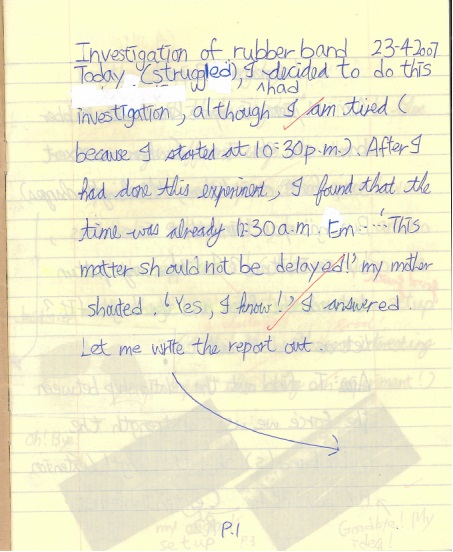 Investigation of rubber band 23-4-2007
Today (struggled), I decided to do this
had
investigation, although I am tired (
because I started at 10:30p.m.). After I
had done this experiment, I found that the
time was already 1:30a.m. Em....'This
matter should not be delayed!' my mother
shouted. 'Yes, I know!' I answered.
Let me write the report out.
P.1